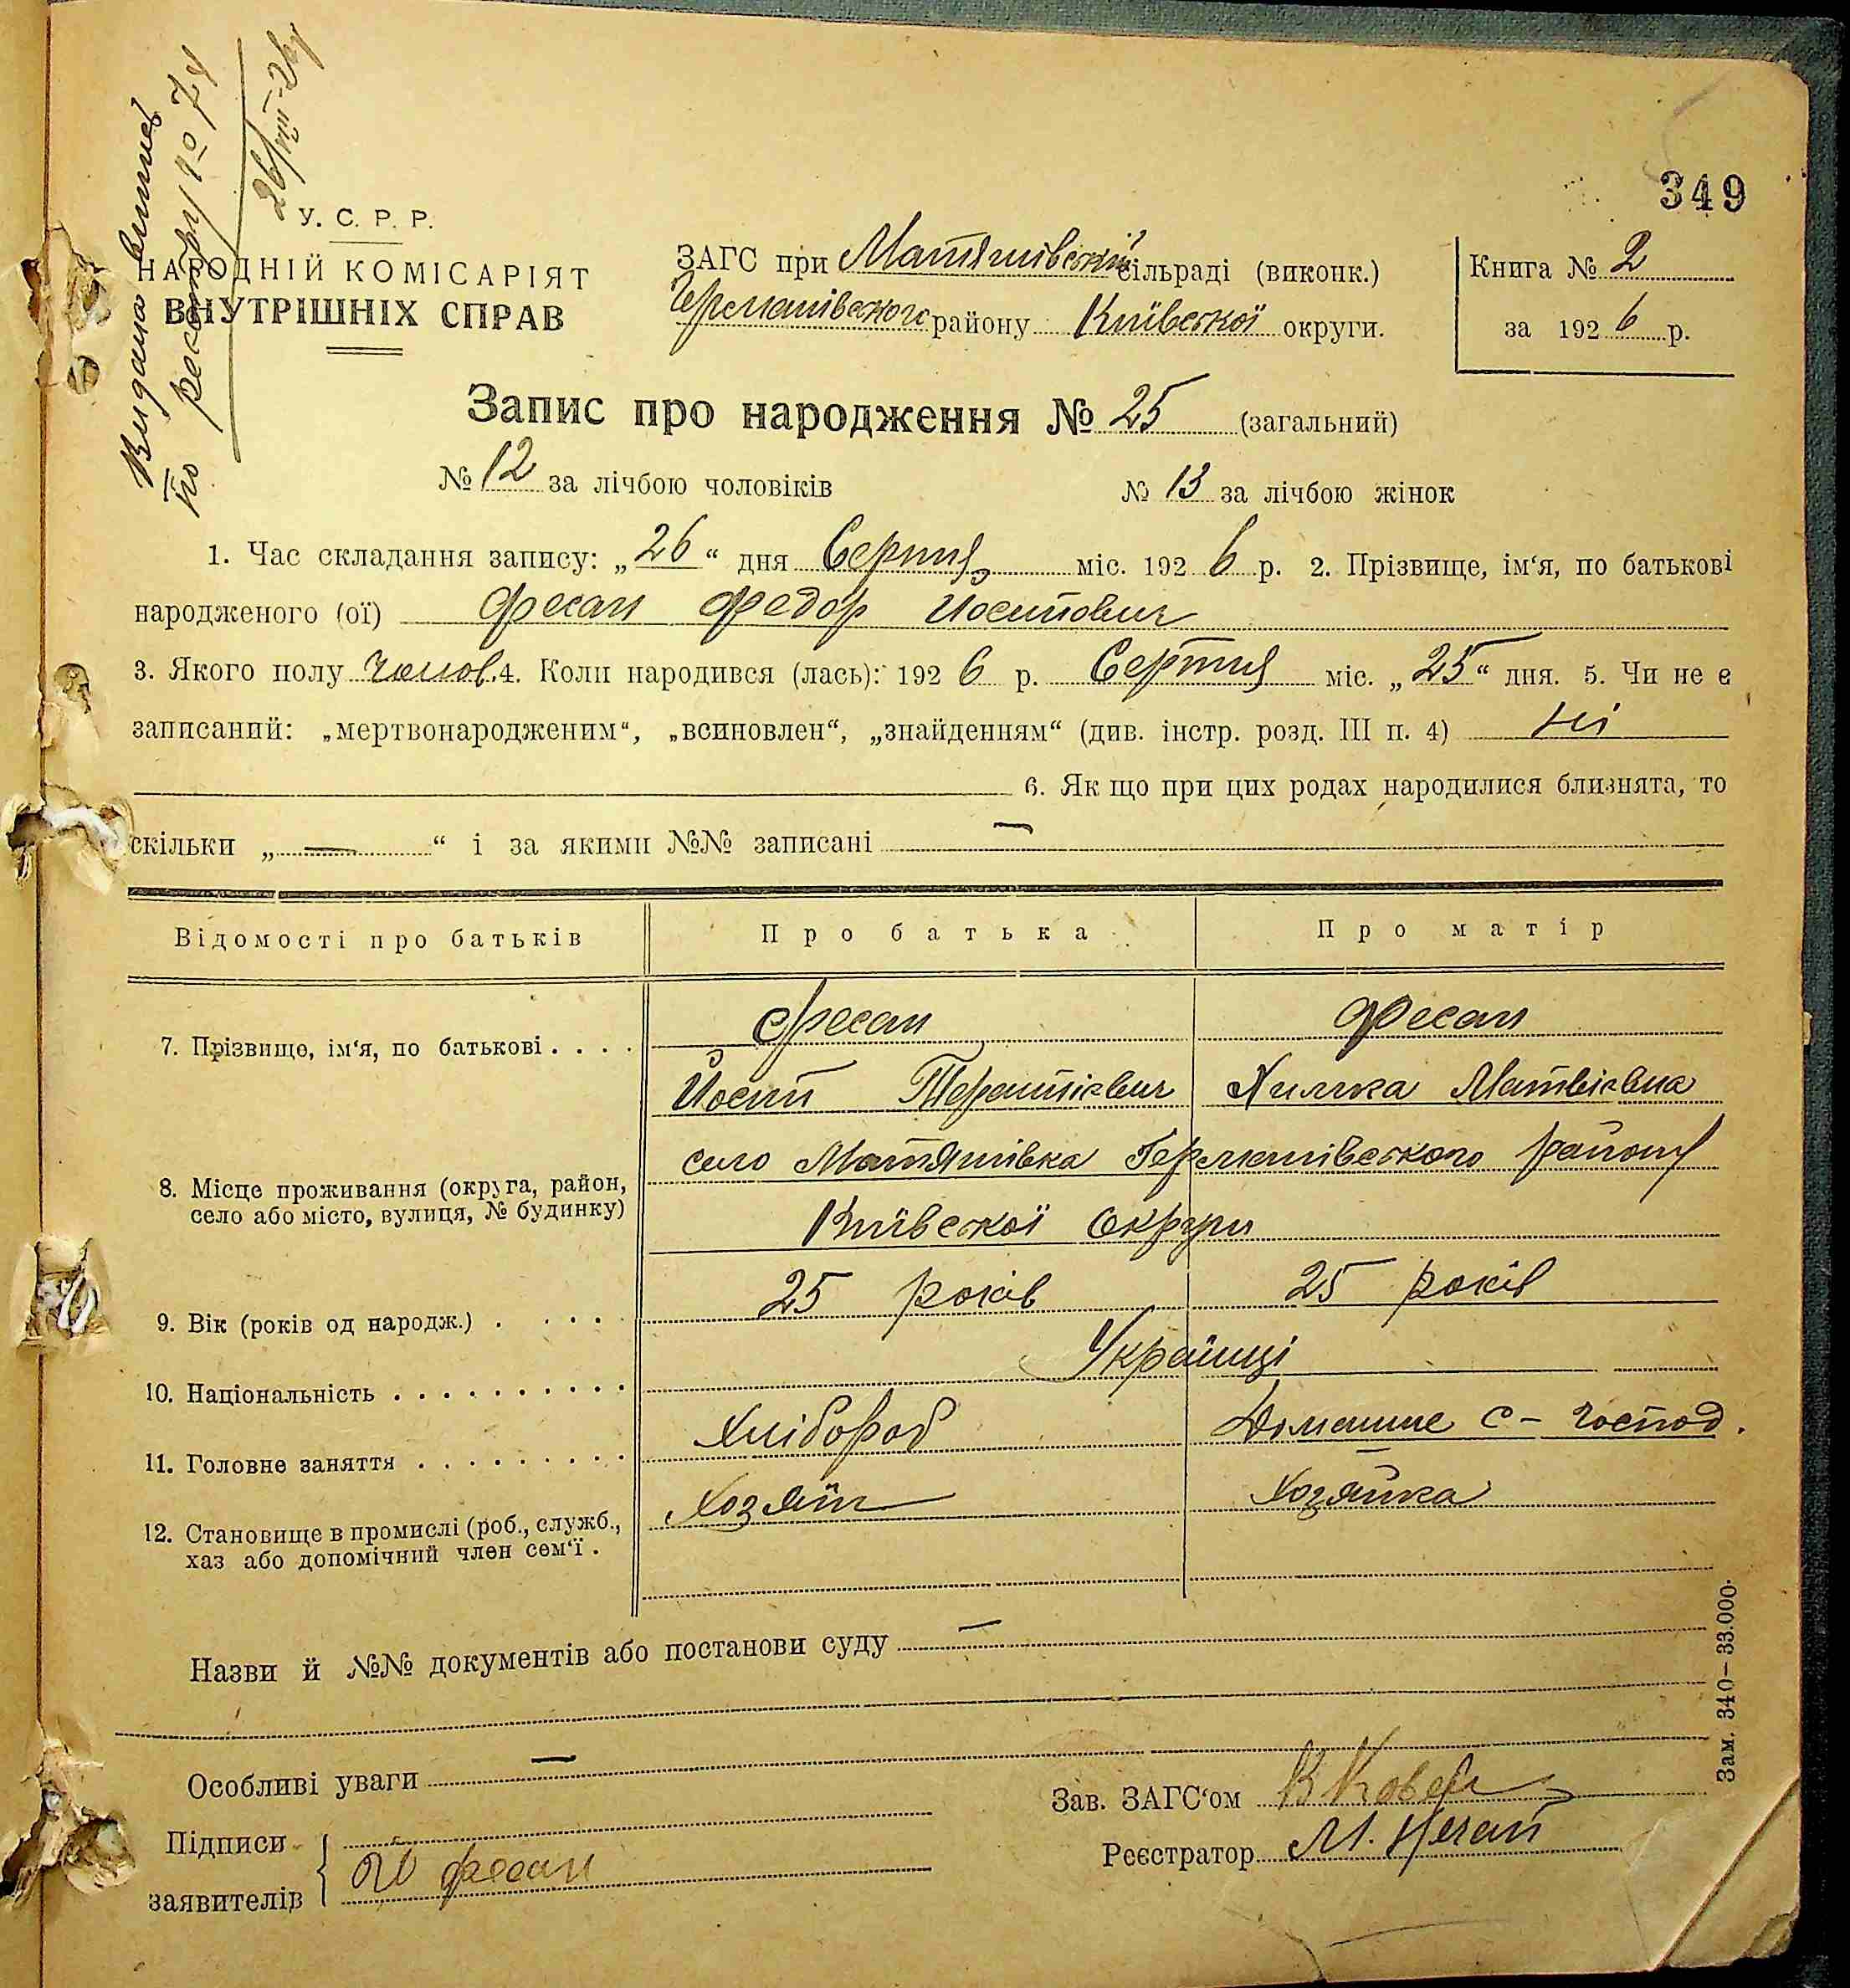 349
Видано витяг
по реєстру № 74
26/VIII-26
У. С. Р. Р.
НАРОДНІЙ КОМІСАРІЯТ
ВНУТРІШНІХ СПРАВ
ЗАГС при Матяшівській сільраді (виконк.)
Германівського району Київської округи.
Книга № 2
за 1926 р.
Запис про народження № 25 (загальний)
№ 12 за лічбою чоловіків № 13 за лічбою жінок
1. Час складання запису: „26“ дня Серпня міс. 1926 р. 2. Прізвище, ім‘я, по батькові
народженого (ої) Фесан Федор Йосипович
3. Якого полу чолов. 4. Коли народився (лась): 1926 р. Серпня міс. „25“ дня. 5. Чи не є
записаний: „мертвонародженим“, „всиновлен“, „знайденням“ (див. інстр. розд. III п. 4) ні
6. Як що при цих родах народилися близнята, то
скільки „—“ і за якими №№ записані —
Відомості про батьків Про батька Про матір
7. Прізвище, ім‘я, по батькові . . . . Фесан Фесан
Йосип Терентієвич Химка Матвієвна
8. Місце проживання (округа, район, село або місто, вулиця, № будинку) село Матяшівка Германівського району
Київської Округи
9. Вік (років од народж.) . . . . . 25 років 25 років
10. Національність . . . . . . . . . . Українці
11. Головне заняття . . . . . . . . . Хлібороб Домашнє с-господ.
12. Становище в промислі (роб., служб., хаз або допомічний член сем‘ї . Хозяїн Хозяйка
Назви й №№ документів або постанови суду —
Особливі уваги —
Зав. ЗАГС‘ом
Підписи заявителів Фесан
Реєстратор М. Нечай
Зам. 340—33.000.